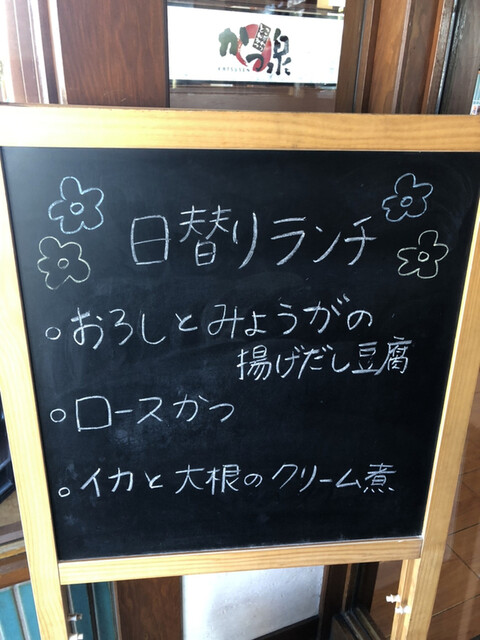 かつ泉
KATSUSEN
日替りランチ
○おろしとみょうがの
揚げだし豆腐
○ロースかつ
○イカと大根のクリーム煮